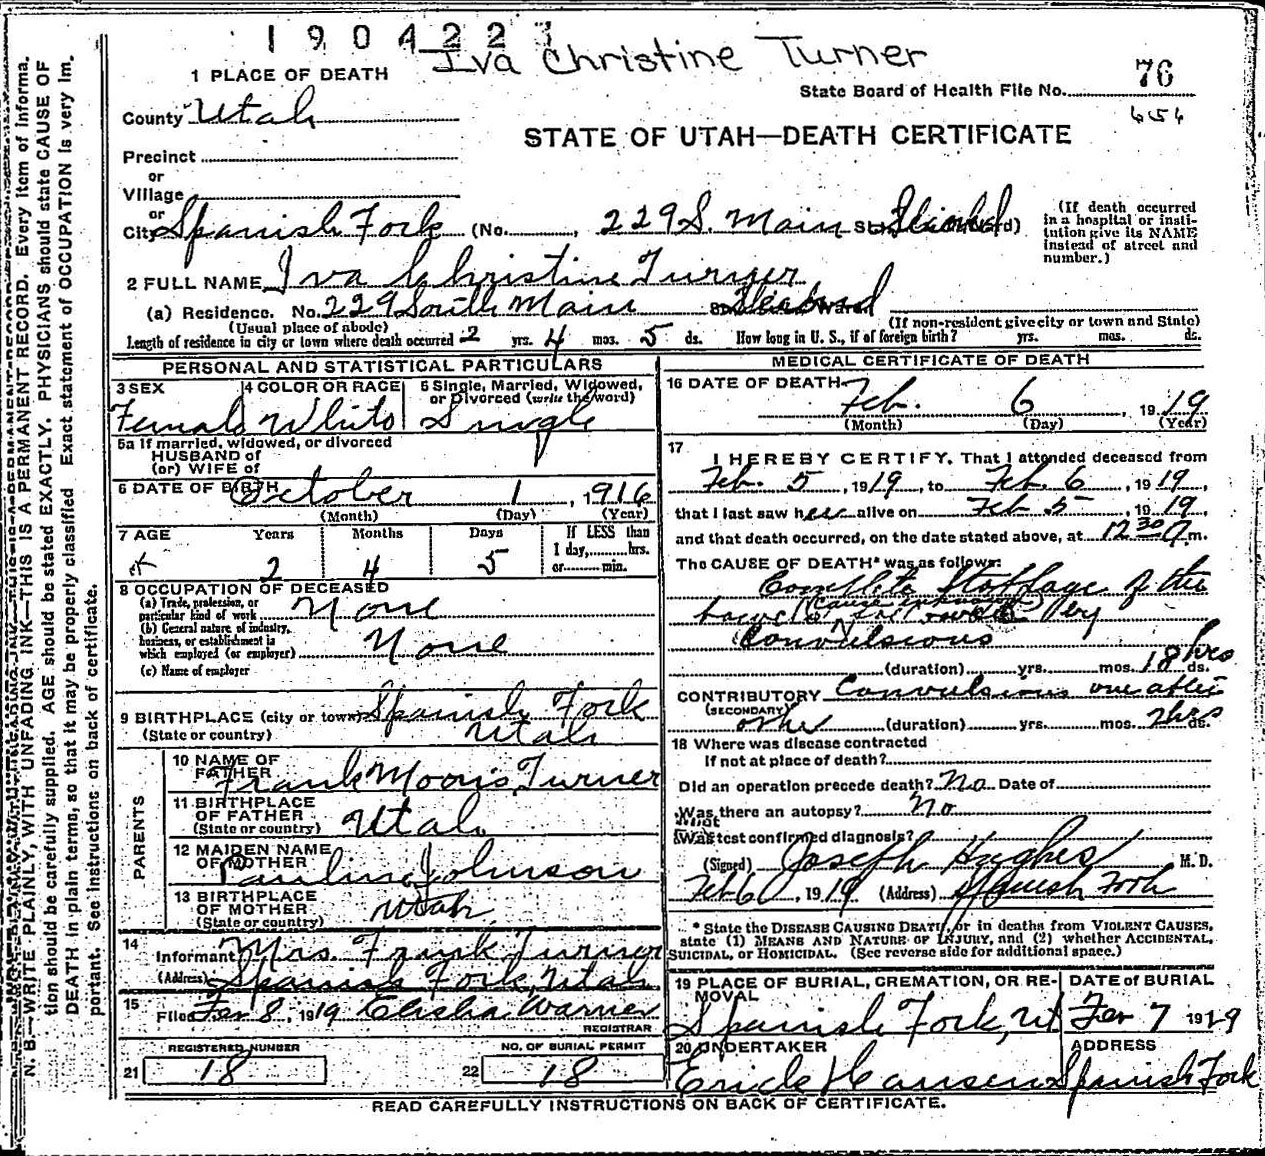 1904227
Iva Christine Turner
1 PLACE OF DEATH
State Board of Health File No. 76
656
County Utah
STATE OF UTAH—DEATH CERTIFICATE
Precinct
or
Village
or
City Spanish Fork (No. , 229 S. Main St.
(If death occurred in a hospital or institution give its NAME instead of street and number.)
2 FULL NAME Iva Christine Turner
(a) Residence. No. 229 South Main
(Usual place of abode)
(If non-resident give city or town and State)
Length of residence in city or town where death occurred 2 yrs. 4 mos. 5 ds. How long in U. S., if of foreign birth? yrs. mos. ds.
PERSONAL AND STATISTICAL PARTICULARS
3 SEX Female
4 COLOR OR RACE White
5 Single, Married, Widowed, or Divorced (write the word) Single
5a If married, widowed, or divorced
HUSBAND of
(or) WIFE of
6 DATE OF BIRTH October 1, 1916
(Month) (Day) (Year)
7 AGE Years 2 Months 4 Days 5
If LESS than 1 day, hrs. or min.
8 OCCUPATION OF DECEASED
(a) Trade, profession, or particular kind of work None
(b) General nature of industry, business, or establishment in which employed (or employer) None
(c) Name of employer
9 BIRTHPLACE (city or town) Spanish Fork
(State or country) Utah
PARENTS
10 NAME OF FATHER Frank Turner
11 BIRTHPLACE OF FATHER
(State or country) Utah
12 MAIDEN NAME OF MOTHER Pauline Johnson
13 BIRTHPLACE OF MOTHER
(State or country) Utah
14 Informant Mrs. Frank Turner
(Address) Spanish Fork, Utah
15 Filed Feb 8, 1919 Elisha Warner
REGISTRAR
REGISTERED NUMBER
21 18
NO. OF BURIAL PERMIT
22 18
MEDICAL CERTIFICATE OF DEATH
16 DATE OF DEATH Feb. 6, 1919
(Month) (Day) (Year)
17 I HEREBY CERTIFY, That I attended deceased from
Feb. 5, 1919, to Feb. 6, 1919,
that I last saw her alive on Feb 5, 1919,
and that death occurred, on the date stated above, at 12 30 m.
The CAUSE OF DEATH* was as follows:
Complete Stoppage of the
bowels (cause unknown) by
Convulsions
(duration) yrs. mos. 18 hrs ds.
CONTRIBUTORY Convulsions one after
(SECONDARY) other (duration) yrs. mos. 2 hrs ds.
18 Where was disease contracted
If not at place of death?
Did an operation precede death? No Date of
Was there an autopsy? No
What test confirmed diagnosis?
(Signed) Joseph Hughes M. D.
Feb 6, 1919 (Address) Spanish Fork
* State the DISEASE CAUSING DEATH, or in deaths from VIOLENT CAUSES,
state (1) MEANS AND NATURE OF INJURY, and (2) whether ACCIDENTAL,
SUICIDAL, or HOMICIDAL. (See reverse side for additional space.)
19 PLACE OF BURIAL, CREMATION, OR REMOVAL
Spanish Fork, Ut
DATE of BURIAL
Feb 7 1919
20 UNDERTAKER
Hansen
ADDRESS
Spanish Fork
READ CAREFULLY INSTRUCTIONS ON BACK OF CERTIFICATE.
N. B.—WRITE PLAINLY, WITH UNFADING INK—THIS IS A PERMANENT RECORD. Every item of informa-
tion should be carefully supplied. AGE should be stated EXACTLY. PHYSICIANS should state CAUSE OF
DEATH in plain terms, so that it may be properly classified. Exact statement of OCCUPATION is very im-
portant. See instructions on back of certificate.